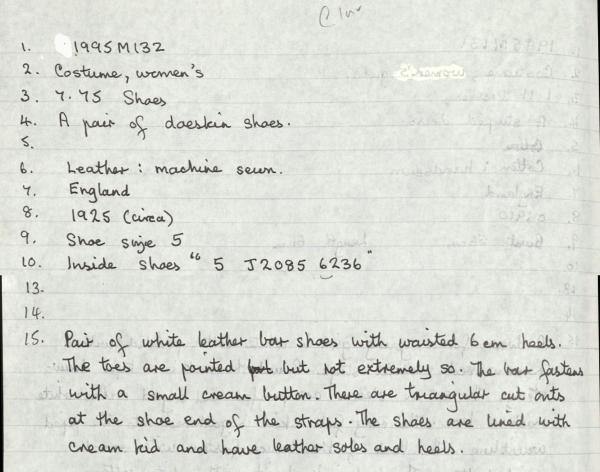 1. 1995M132
2. Costume, women's
3. 7.75 Shoes
4. A pair of doeskin shoes.
5.
6. Leather: machine sewn.
7. England
8. 1925 (circa)
9. Shoe size 5
10. Inside shoes "5 J2085 6236"
13.
14.
15. Pair of white leather bar shoes with waisted 6cm heels.
The toes are pointed but not extremely so. The bar fastens
with a small cream button. There are triangular cut outs
at the shoe end of the straps. The shoes are lined with
cream kid and have leather soles and heels.